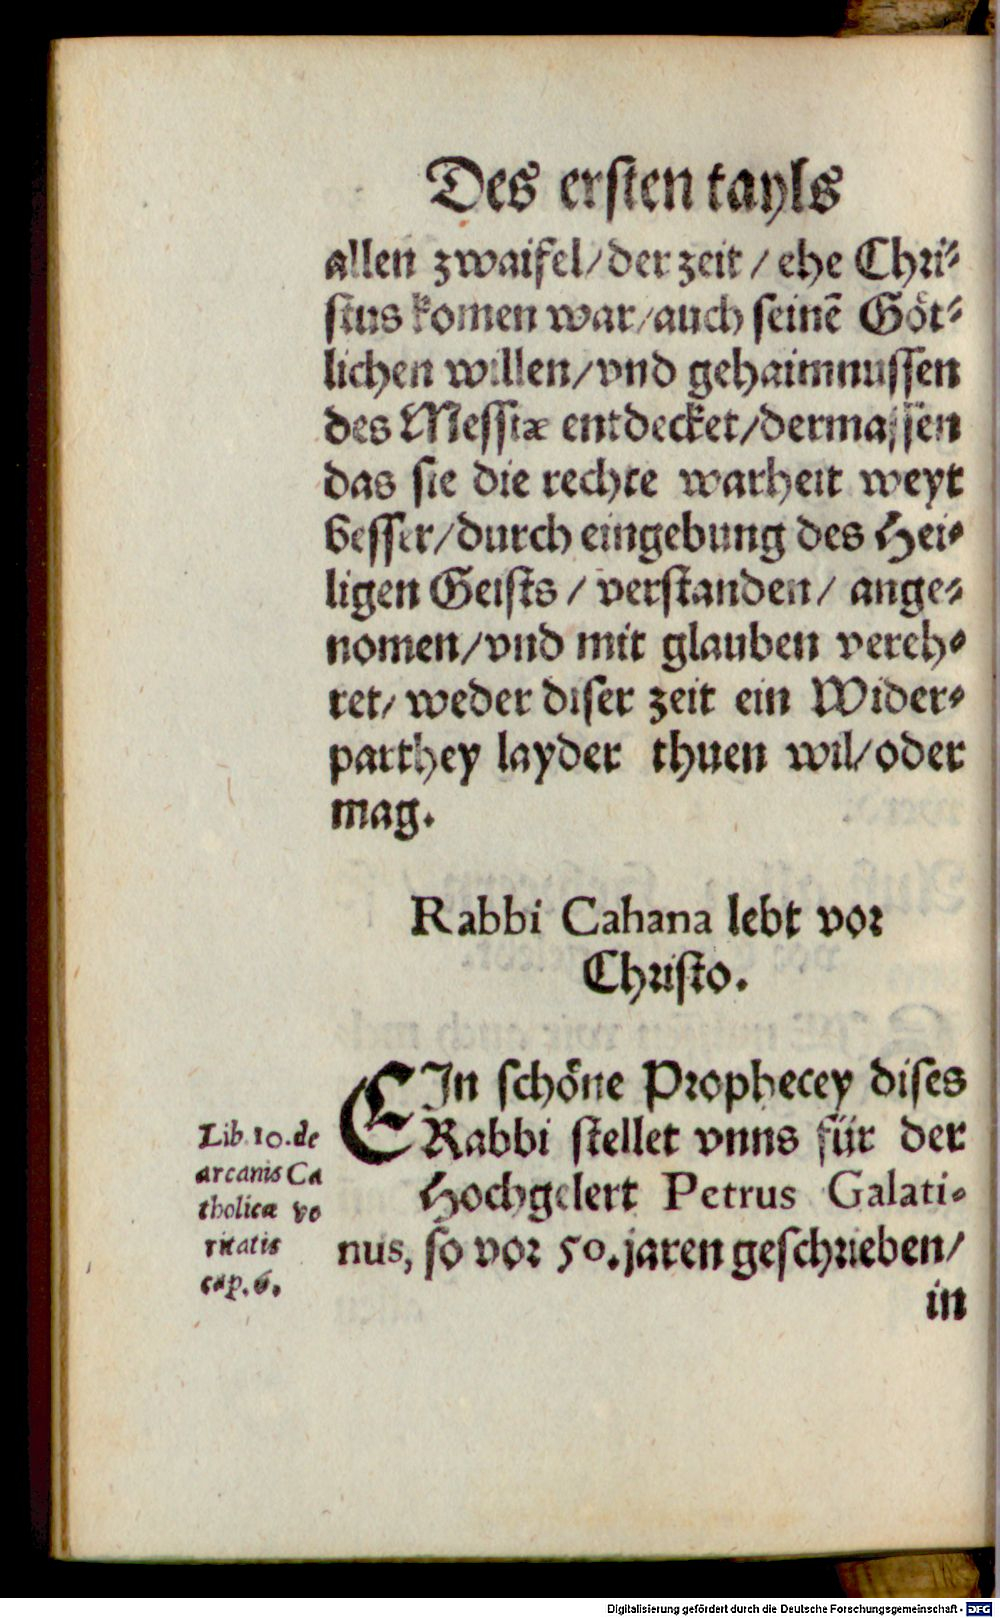 Des ersten tayls
allen zwaifel/ der zeit / ehe Chri⸗
stus komen war/ auch seinē Göt⸗
lichen willen/ vnd gehaimnussen
des Messiæ entdecket/ dermassen
das sie die rechte warheit weyt
besser/ durch eingebung des Hei⸗
ligen Geists / verstanden/ ange⸗
nomen/ vnd mit glauben vereh⸗
ret/ weder diser zeit ein Wider⸗
parthey layder thuen wil/ oder
mag.
Rabbi Cahana lebt vor
Christo.
EIn schöne Prophecey dises
Rabbi stellet vnns für der
Hochgelert Petrus Galati⸗
nus, so vor 50. jaren geschrieben/
in
Lib. 10. de
arcanis Ca
tholicæ ve
ritatis
cap. 6.
Digitalisierung gefördert durch die Deutsche Forschungsgemeinschaft - DFG